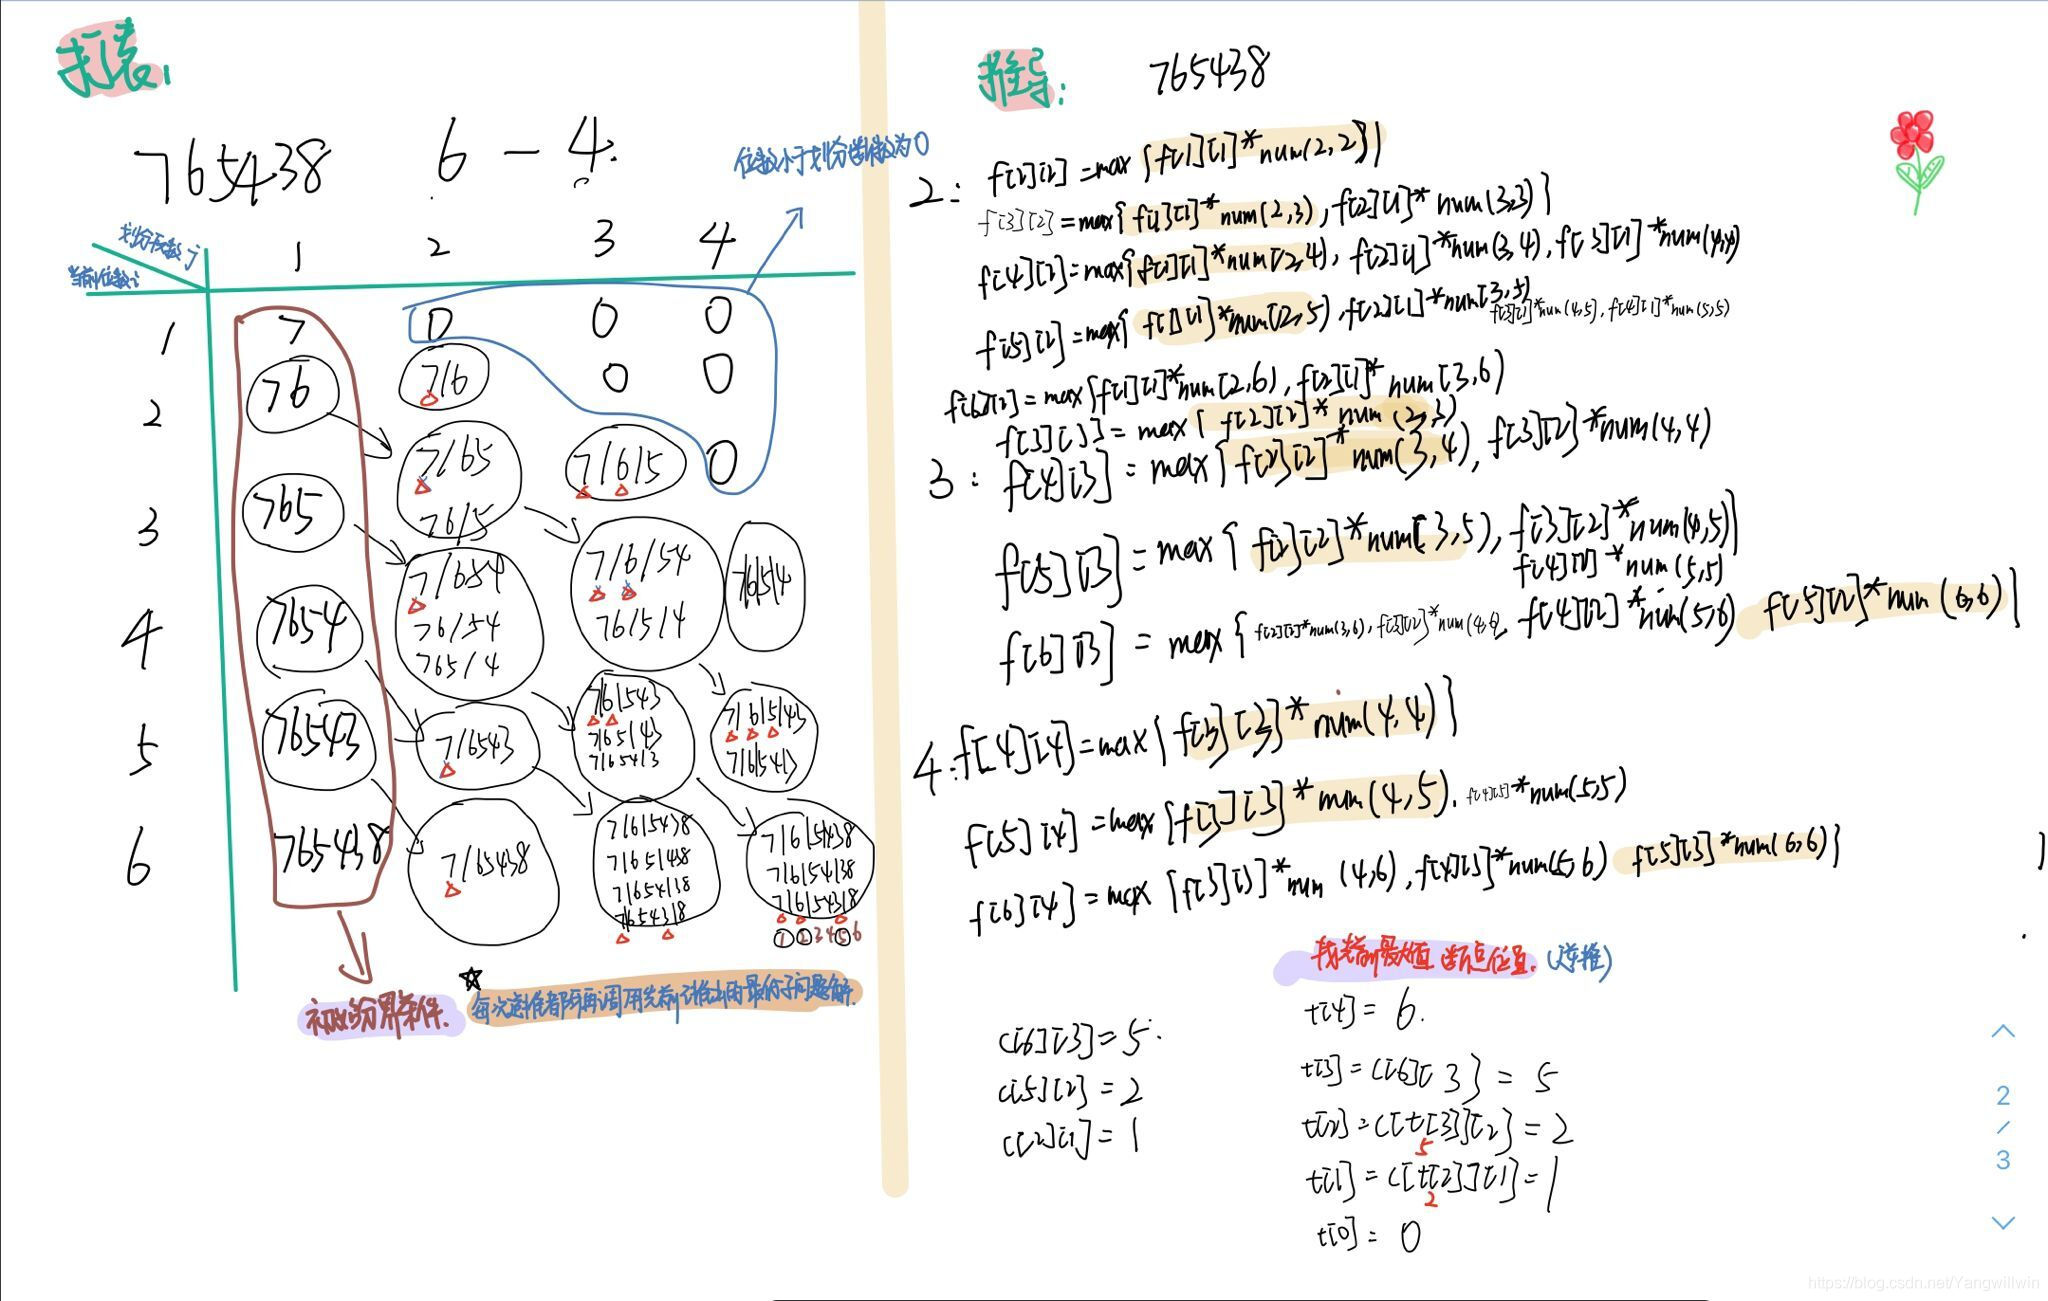 打表:
765438 6 - 4.
位数小于划分段数为0
划分段数 j
当前位数 i
1 2 3 4
1 7 0 0 0
2 76 7/6 0 0
3 765 7/65 7/6/5 0
76/5
4 7654 7/654 7/6/54 7/6/5/4
76/54 76/5/4
765/4
5 76543 7/6543 7/6/543 7/6/5/43
7/65/43 7/6/54/3
7/654/3
6 765438 7/65438 7/6/5438 7/6/5/438
7/65/438 7/6/54/38
7/654/38 7/6/543/8
7/6543/8
① ② 3 4 ⑤ 6
初始边界条件.
☆ 每次递推都再调用先前已推出的最优子问题解.
推导: 765438
2: f[2][2] =max{f[1][1]*num(2,2)}
f[3][2] =max{f[1][1]*num(2,3), f[2][1]*num(3,3)}
f[4][2]=max{f[1][1]*num(2,4), f[2][1]*num(3,4), f[3][1]*num(4,4)
f[5][2]=max{ f[1][1]*num(2,5), f[2][1]*num(3,5)
f[3][1]*num(4,5), f[4][1]*num(5,5)
f[6][2]=max{f[1][1]*num(2,6), f[2][1]*num(3,6)
f[3][3] = max{ f[2][2]*num(2,3)
3: f[4][3] = max{f[2][2]*num(3,4), f[3][2]*num(4,4)
f[5][3] = max{ f[2][2]*num(3,5), f[3][2]*num(4,5)
f[4][2]*num(5,5)
f[6][3] = max{f[2][2]*num(3,6), f[3][2]*num(4,6), f[4][2]*num(5,6) f[5][2]*num(6,6)}
4: f[4][4]=max{f[3][3]*num(4,4)}
f[5][4] =max{f[3][3]*num(4,5), f[4][3]*num(5,5)
f[6][4]=max{f[3][3]*num (4,6), f[4][3]*num(5,6) f[5][3]*num(6,6)}
找先前最大值 断点位置. (逆推)
c[6][3]=5.
c[5][2] = 2
c[2][1] = 1
t[4] = 6.
t[3] = c[6][3] = 5
t[2] = c[t[3]][2] = 2
5
t[1] = c[t[2]][1] = 1
2
t[0] = 0
2
/
3
https://blog.csdn.net/Yangwillwin